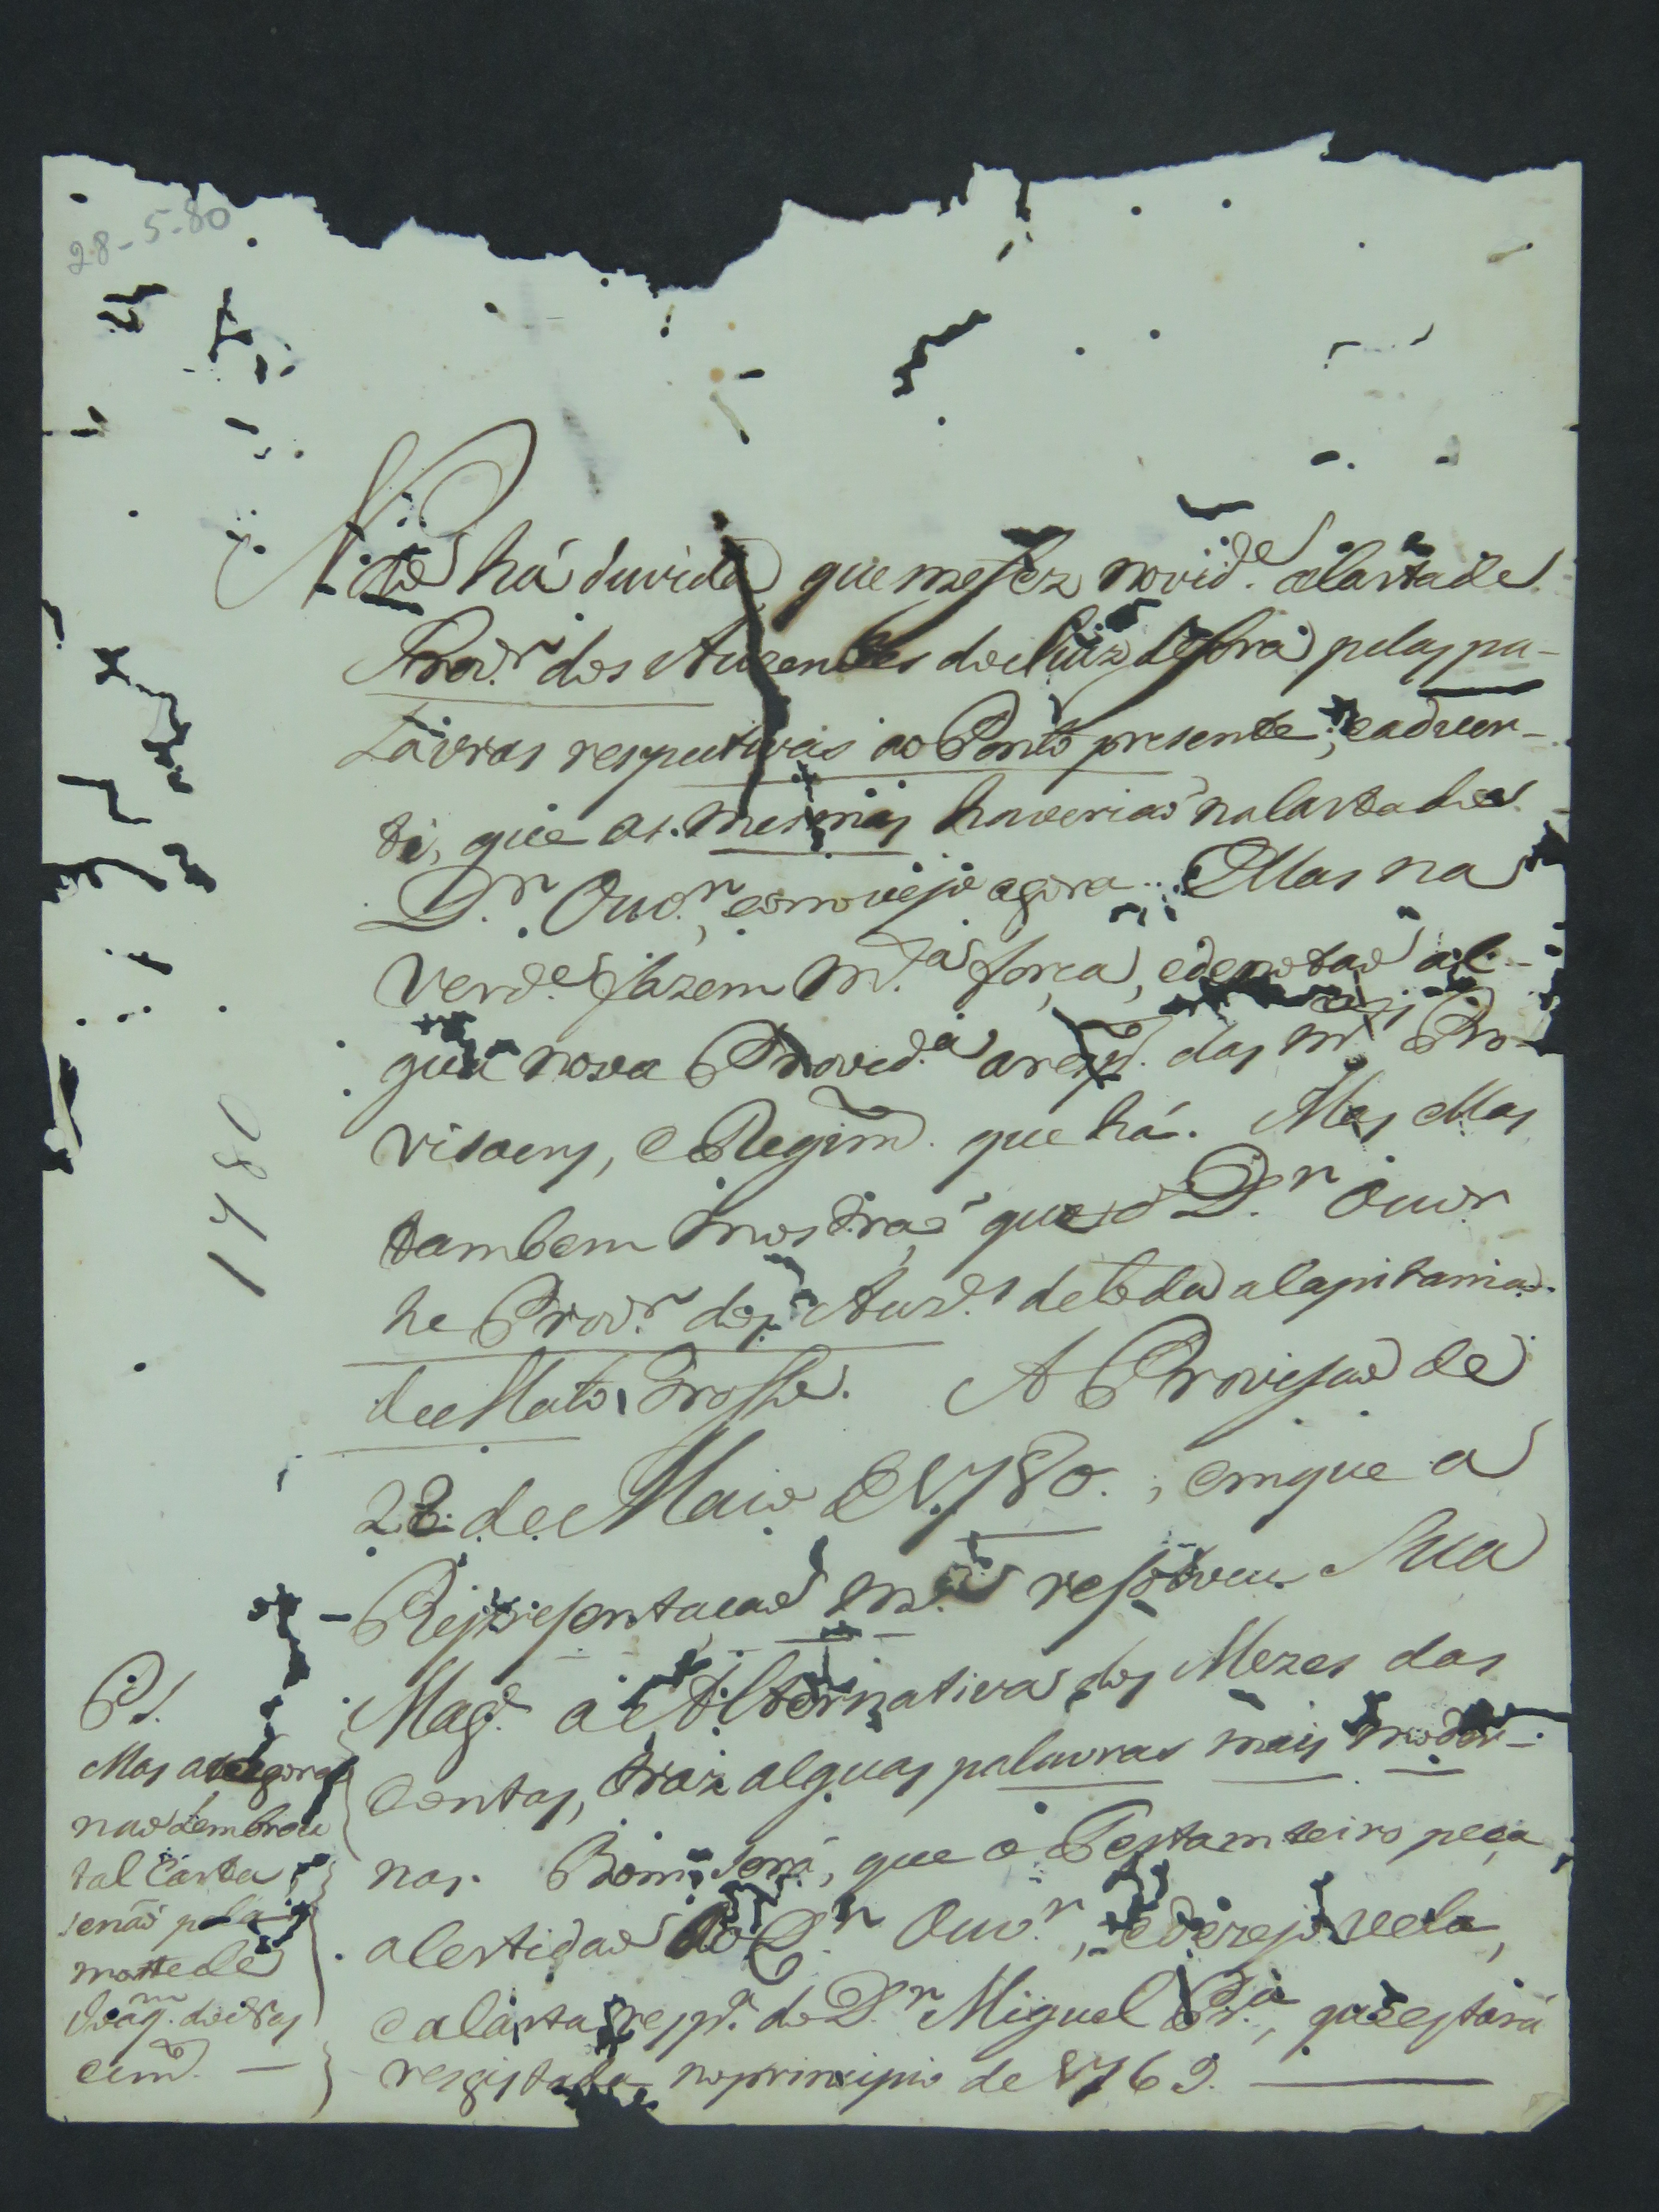 28-5-80
Não há duvida, que me fez novid.e a Carta de
Prov.r dos Auzentes do Juiz de fora pelas pa-
lavras respectivas ao Ponto presente, e adver-
ti, que as mesmas haveriaõ na Carta do
D.r Ouv.r, como vejo agora. Mas na
verd.e fazem m.ta força, e
gua nova Provid.a a resp.to das m.tas Pro-
visoens, e Regim.to que há. Mas Mas
tambem mostraõ que o D.r Ouv.r
he Prov.r dos Auz.es de toda a Capitania
de Mato Grosso. A Provisaõ de
28 de Maio de 1780., em que a
Reprezentaçaõ m.a resolveu Sua
Mag.e a Alternativa dos Mezes das
Contas, traz alguas palavras mais moder-
nas. Bom será, que o Testamteiro peça
a Certidaõ do D.r Ouv.r, e dezejo vela,
e a Carta resp.a do D.r Miguel Pr.a, que estará
resgistada no principio de 1769.
1780
PS.
Mas athegora
naõ lembrou
tal Carta
senaõ pela
morte de
Joaq.m